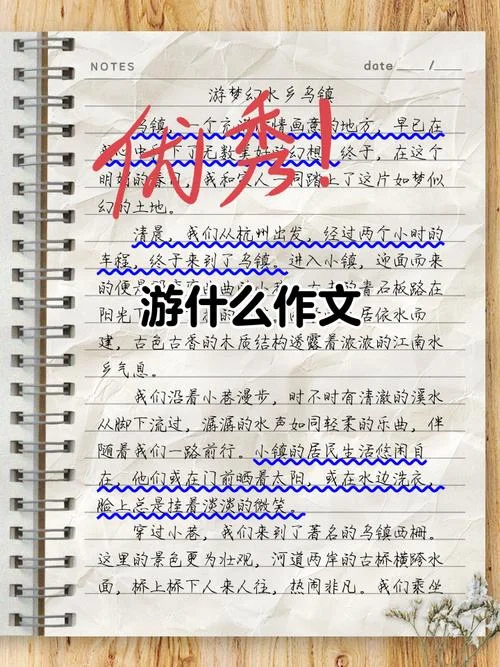 NOTES date / /
游梦幻水乡乌镇
优秀!
乌镇，一个充满诗情画意的地方，早已在
我心中 下了无数美好的幻想。终于，在这个
明媚的春日，我和家人一同踏上了这片如梦似
幻的土地。
清晨，我们从杭州出发，经过两个小时的
车程，终于来到了乌镇。进入小镇，迎面而来
的便是 青石板路在
游什么作文
阳光下 居依水而
建，古色古香的木质结构透露着浓浓的江南水
乡气息。
我们沿着小巷漫步，时不时有清澈的溪水
从脚下流过，潺潺的水声如同轻柔的乐曲，伴
随着我们一路前行。小镇的居民生活悠闲自
在，他们或在门前晒着太阳，或在水边洗衣，
脸上总是挂着淡淡的微笑。
穿过小巷，我们来到了著名的乌镇西栅。
这里的景色更为壮观，河道两岸的古桥横跨水
面，桥上桥下人来人往，热闹非凡。我们乘坐